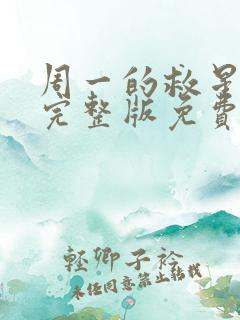 周一的救星
完整版免费
轻卿子衿
未经同意禁止转载